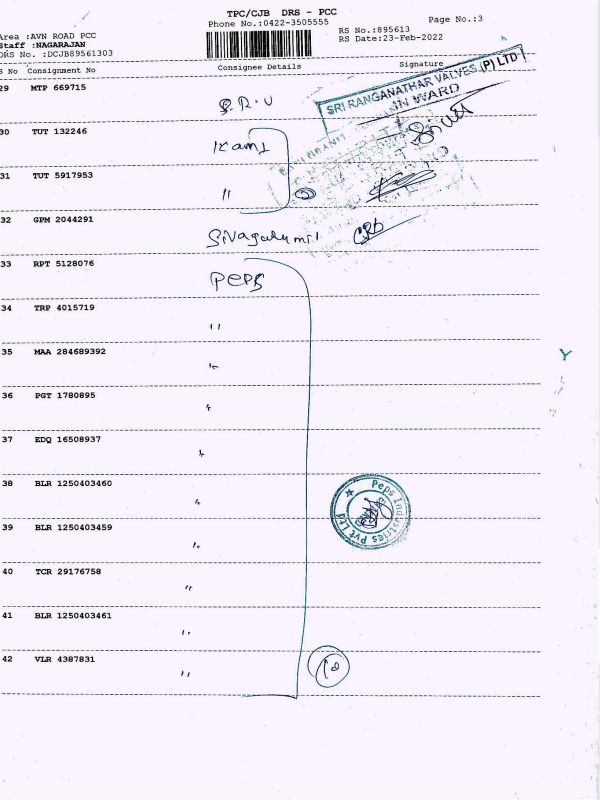 TPC/CJB DRS - PCC
Phone No.:0422-3505555
Page No.:3
Area :AVN ROAD PCC
RS No.:895613
Staff :NAGARAJAN
RS Date:23-Feb-2022
DRS No. :DCJB89561303
S No Consignment No Consignee Details Signature
29 MTP 669715
S.R.V
SRI RANGANATHAR VALVES (P) LTD
IN WARD
30 TUT 132246
31 TUT 5917953 "
32 GPM 2044291
33 RPT 5128076 PEPS
34 TRP 4015719 "
35 MAA 284689392 "
36 PGT 1780895 "
37 EDQ 16508937 "
38 BLR 1250403460 "
Peps Industries Pvt Ltd
39 BLR 1250403459 "
40 TCR 29176758 "
41 BLR 1250403461 "
42 VLR 4387831 "
10